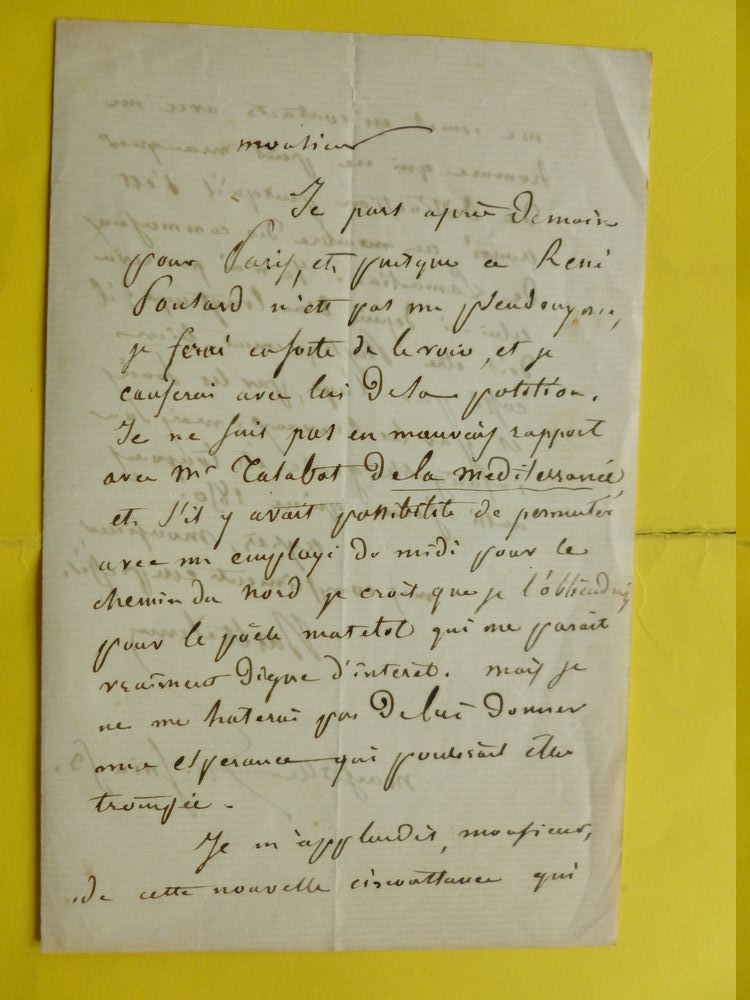 monsieur
Je pars après Demain
pour Paris, et puisque ce René
Ponsard n'est pas un pseudonyme,
je ferai ensorte de le voir, et je
causerai avec lui De sa position.
Je ne suis pas en mauvais rapport
avec Mr Talabot De la mediterranée
et s'il y avait possibilité de permuter
avec un employé du midi pour le
chemin du nord je crois que je l'obtiendrai
pour le poëte matelot qui me parait
vraiment Digne d'interet. mais je
ne me haterai pas De lui Donner
une esperance qui pourrait être
trompée.
Je m'applaudis, monsieur,
de cette nouvelle circonstance qui